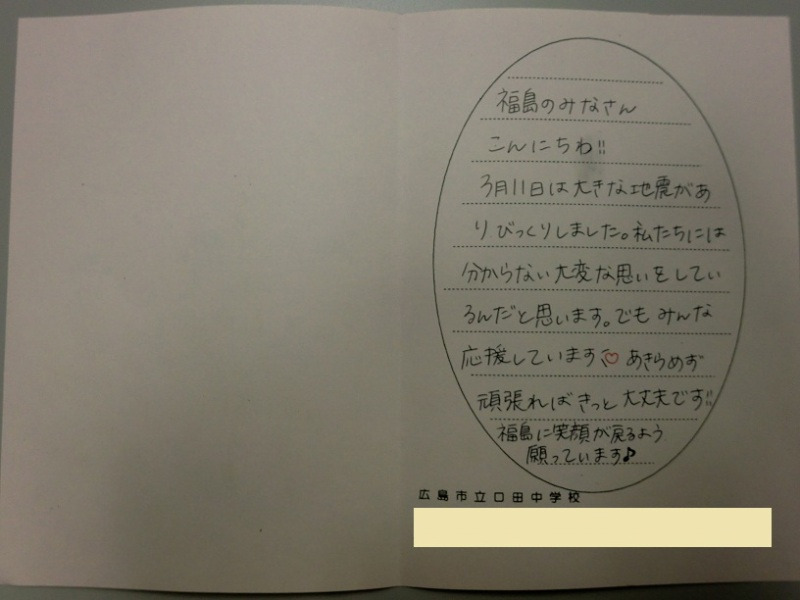 福島のみなさん
こんにちわ!!
3月11日は大きな地震があ
りびっくりしました。私たちには
分からない大変な思いをしてい
るんだと思います。でもみんな
応援しています♡あきらめず
頑張ればきっと大丈夫です!!
福島に笑顔が戻るよう
願っています♪
広島市立口田中学校